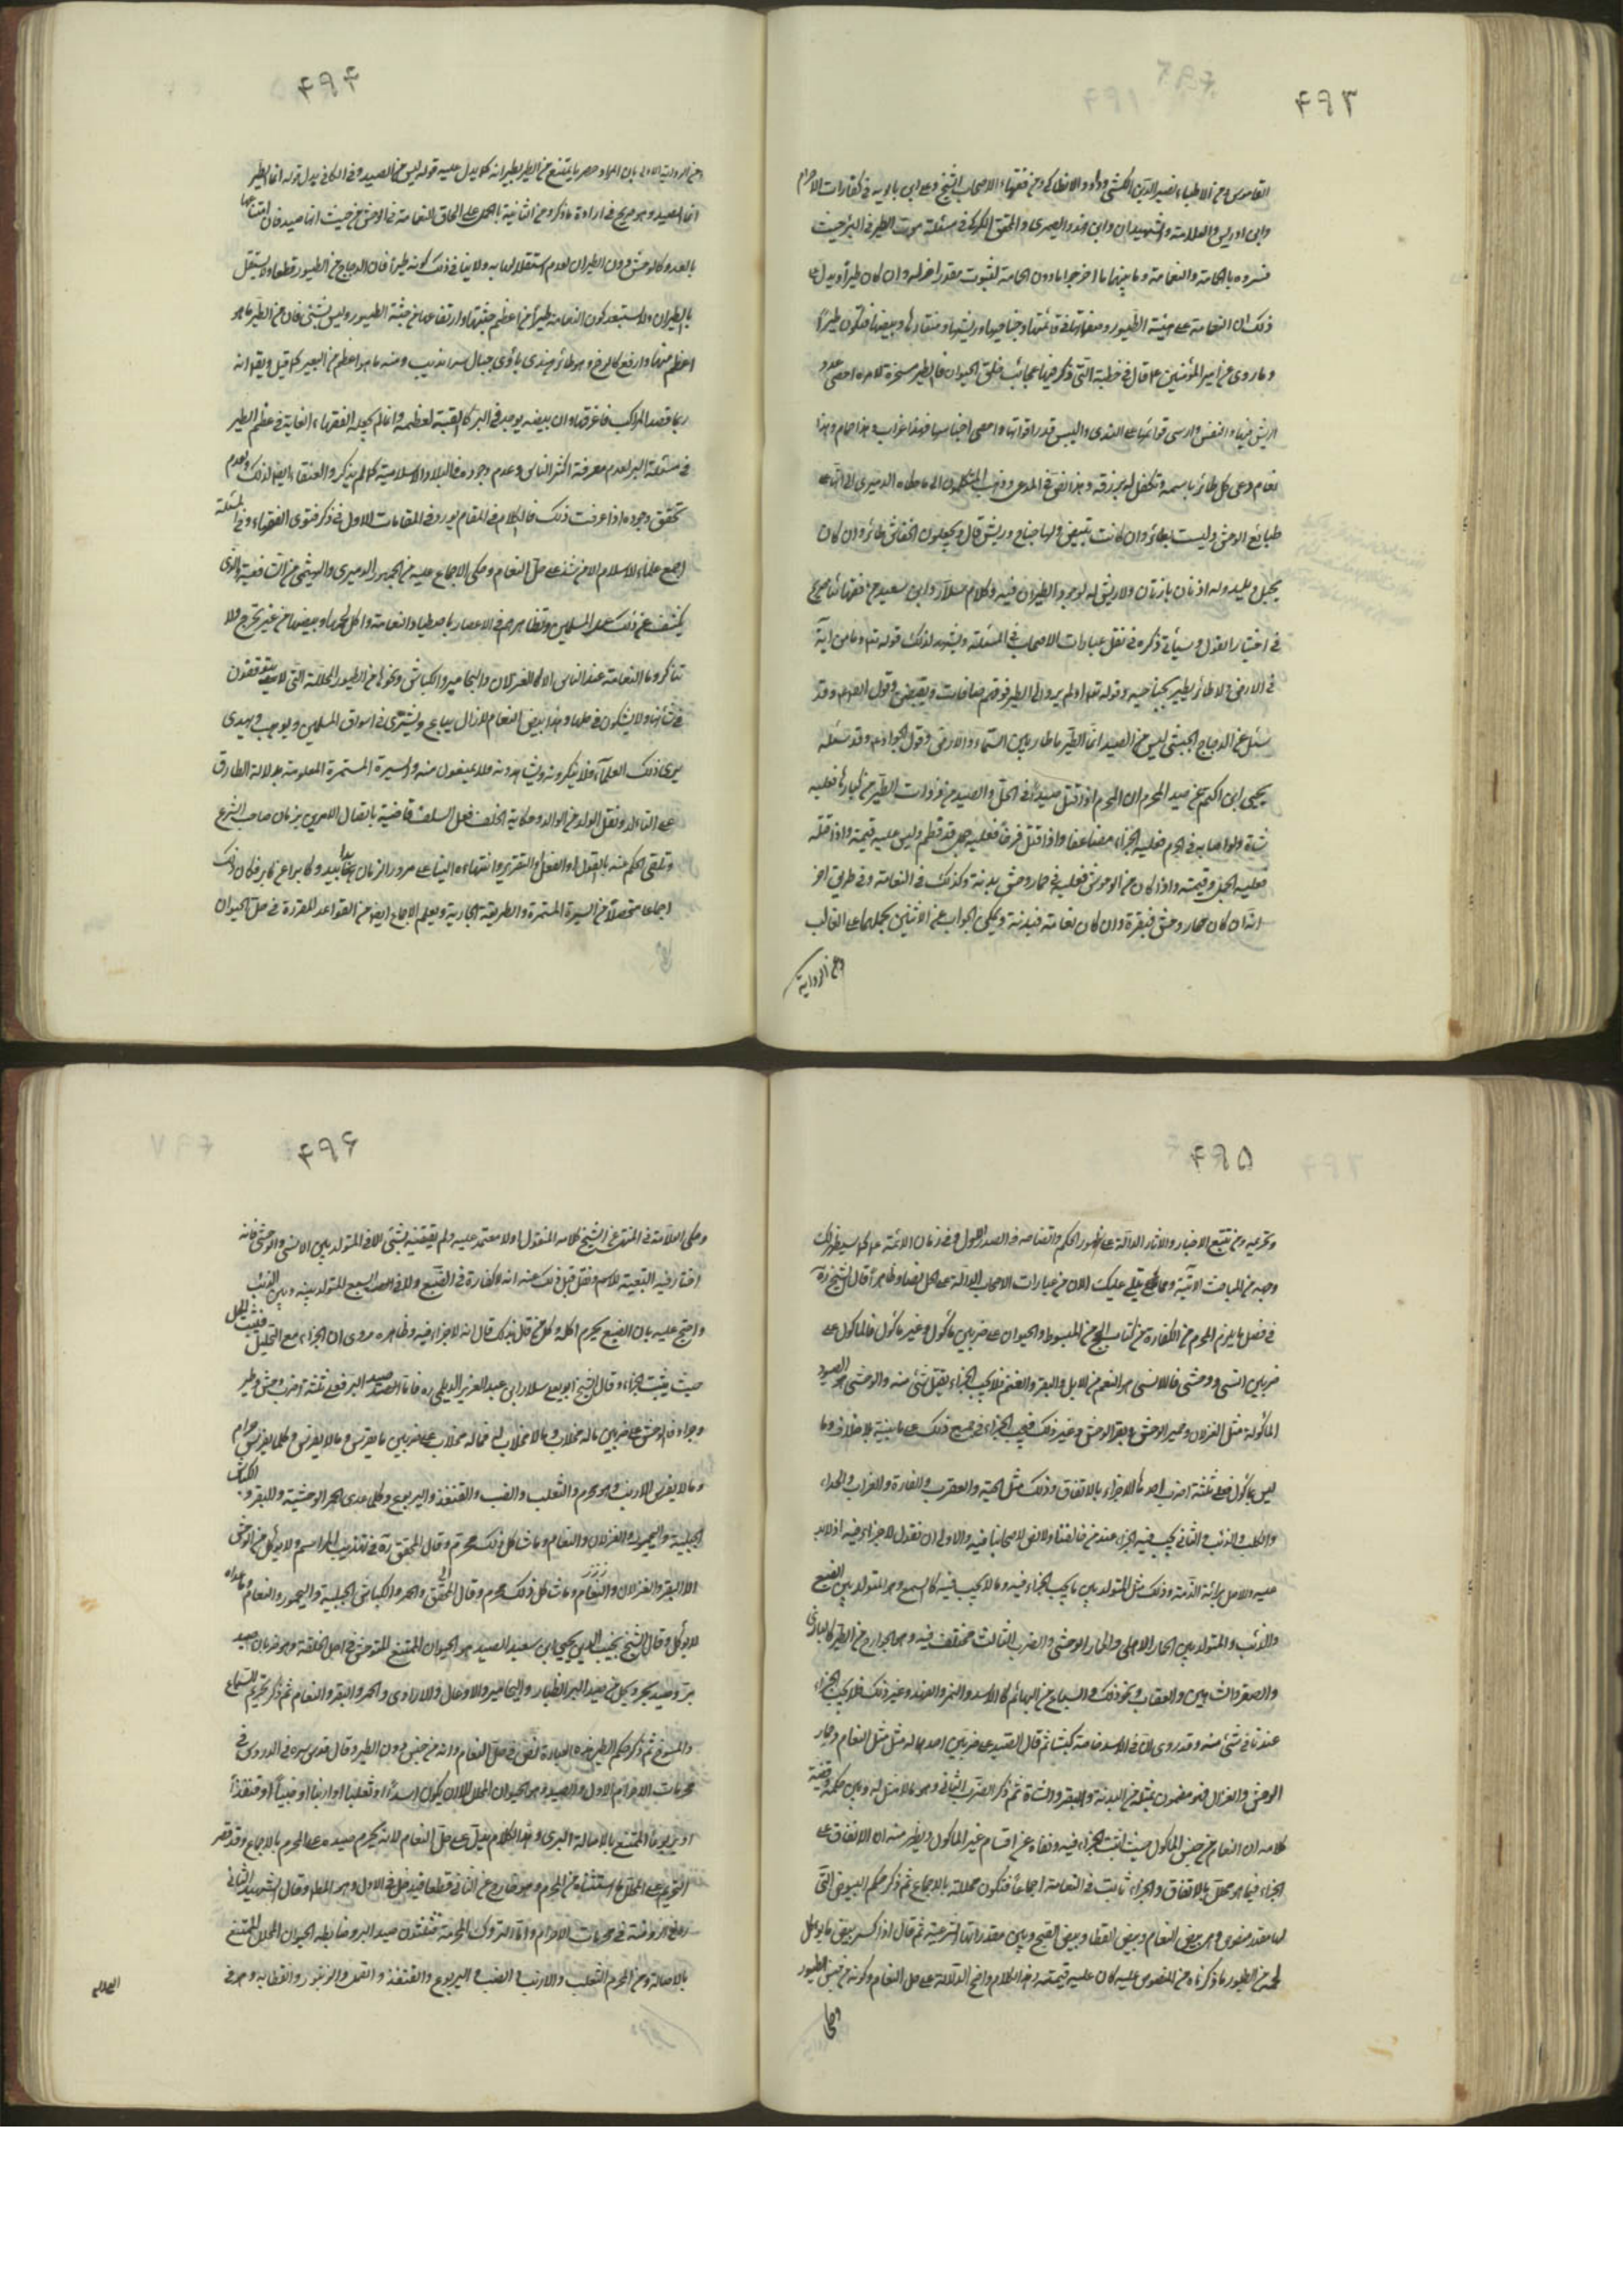 ۴۹۳
القاموس و من الاطباء نفيس الدين الكشي وداود الانطاكي و من فقهاء الاصحاب الشيخ و على ابن بابويه في كفارات الاحرام
وابن ادريس والعلامة والشهيدان وابن فهد والصيمري والمحقق الكركي في مسئلة موت الطير في البئر حيث
فسروه بالحمامة والنعامة وما بينهما وما اخرجوا ما دون الحمامة لثبوت مقدر اخر له وان كان طيرا ويدل على
ذلك ان النعامة على هيئة الطيور وصفاتها في قائمتها وجناحيها وريشها ومنقارها وبيضها فتكون طيرا
وما روى عن امير المؤمنين ع قال في خطبة التي ذكر فيها عجائب خلق الحيوان فالطير مسخرة لامره احصى عدد
الريش منها والنفس وارسى قوائمها على الندى واليبس قدر اقواتها واحصى اجناسها فهذا غراب وهذا حمام وهذا
نعام دعى كل طائر باسمه وتكفل له برزقه وهذا نص في المدعى وذهب المتكلمون الى ما حكاه الدميري الى انها على
طبائع الوحش وليست بطائر وان كانت تبيض ولها جناح وريش قال ويجعلون الخفاش طائر وان كان
يحبل ويلد وله اذنان بارزتان ولا ريش له لوجود الطيران فيه وكلام سلار وابن سعيد من فقهائنا صريح
في اختيار القول وسيأتي ذكره في نقل عبارات الاصحاب في المسئلة ويشهد لذلك قوله تعا وما من دابة
في الارض ولا طائر يطير بجناحيه وقوله تعا اولم يروا الى الطير فوقهم صافات ويقبضن وقول الص ع وقد
سئل عن الدجاج الحبشي ليس من الصيد انما الطير ما طار بين السماء والارض وقول الجواد ع وقد سئله
يحيى ابن اكثم عن صيد المحرم ان المحرم اذا قتل صيدا في الحل والصيد من ذوات الطير من كبارها فعليه
شاة ولو اصابه في الحرم فعليه الجزاء مضاعفا واذا قتل فرخا فعليه حمل قد فطم وليس عليه قيمته واذا قتله
فعليه الحمل وقيمته واذا كان من الوحوش فعليه في حمار وحش بدنة وكذلك في النعامة وفي طريق اخر
انه ان كان حمار وحش فبقرة وان كان نعامة فبدنة ويمكن الجواب عن الاثنين بحملهما على الغالب
وعن الرواية
۴۹۴
وعن الرواية الاولى بان المراد حصر ما يمتنع من الطير بطيرانه كما يدل عليه قوله ليس من الصيد وفي الكافي بدل قوله انما الطير
انما الصيد وهو صريح في ارادة ما ذكر وعن الثانية بالحمل على الحاق النعامة في الوحش من حيث انها صيد فان امتناعها
بالعدو كالوحش دون الطيران لعدم استقلالها به ولا ينافي ذلك كونه طيرا فان الدجاج من الطيور قطعا ولا يستقل
بالطيران ولا استبعد كون النعامة طيرا من اعظم جثتها وارتفاعها عن جثة الطيور وليس بشئ فان من الطير ما هو
اعظم منها وارفع كالرخ وهو طائر هندي يأوي جبال سرانديب ومنه ما هو اعظم من البعير كما قيل ويقال انه
ربما قصد المراكب فاغرقها وان بيضه يوجد في البر كالقبة لعظمه وانما لم يجعله الفقهاء الغاية في عظم الطير
في مسئلة البئر لعدم معرفة اكثر الناس وعدم وجوده في البلاد الاسلامية كما لم يذكروا العنقاء ايضا لذلك ولعدم
تحقق وجوده اذا عرفت ذلك فالكلام في المقام يورد في المقامات الاول في ذكر فتوى الفقهاء وفي المسئلة
اجمع علماء الاسلام الا من شذ على حل النعام وحكى الاجماع عليه من الجمهور الدميري والهيثمي من الشافعية والذي
يكشف عن ذلك عمل المسلمين وتظاهرهم في الاعصار باصطياد النعامة واكل لحمها وبيضها من غير تحرج ولا
تناكر وما النعامة عند الناس الا كالغزلان واليحامير والكباش ونحوها من الطيور المحللة التي لا يتوقفون
في شأنها ولا يشكون في حلها وهذا بيض النعام لا يزال يباع ويشترى في اسواق المسلمين ويوهب ويهدى
يرى ذلك العلماء فلا ينكرونه ويشاهدونه فلا يمنعون منه والسيرة المستمرة المعلومة بدلالة الطارف
على التالد ونقل الولد عن الوالد وحكاية الخلف فعل السلف قاضية باتصال الامر من زمان صاحب الشرع
وتلقى الحكم منه بالقول او الفعل او التقرير وانتهاءه الينا على مرور الزمان يدا بيد وكابرا عن كابر فكان ذلك
اجماعا متحصلا من السيرة المستمرة والطريقة الجارية ويعلم الاجماع ايضا من القواعد المقررة في حل الحيوان
۴۹۵
وتحريمه ومن تتبع الاخبار والاثار الدالة على ظهور الحكم واتضاحه في الصدر الاول وفي زمان الائمة ع كما سيظهر لك
وجهه من المباحث الاتية ومما يتلى عليك الان من عبارات الاصحاب الدالة على الحل نصا وظاهرا قال الشيخ ره
في فصل ما يلزم المحرم من الكفارة من كتاب الحج من المبسوط والحيوان على ضربين مأكول وغير مأكول فالمأكول على
ضربين انسي ووحشي فالانسي هو النعم من الابل والبقر والغنم فلا يجب الجزاء بقتل شئ منه والوحشي هو الصيود
المأكولة مثل الغزلان وحمير الوحش وبقر الوحش وغير ذلك فيجب الجزاء في جميع ذلك على ما بينته بلا خلاف وما
ليس بمأكول فعلى ثلثة اضرب احدها لا جزاء بالاتفاق وذلك مثل الحية والعقرب والفارة والغراب والحداء
والكلب والذئب والثاني يجب فيه الجزاء عند من خالفنا ولا نص لاصحابنا فيه والاولى ان نقول لا جزاء فيه اذ لا دليل
عليه والاصل برائة الذمة وذلك مثل المتولد بين ما يجب الجزاء فيه وما لا يجب فيه كالسمع وهو المتولد بين الضبع
والذئب والمتولد بين الحمار الاهلي والحمار الوحشي والضرب الثالث مختلف فيه وهو الجوارح من الطير كالبازي
والصقر والشاهين والعقاب ونحو ذلك والسباع من البهائم كالاسد والنمر والفهد وغير ذلك فلا يجب الجزاء
عندنا في شئ منه وقد روى ان في الاسد خاصة كبشا ثم قال الصيد على ضربين احدهما له مثل مثل النعام وحمار
الوحش والغزال فهو مضمون بمثله من البدنة والبقر والشاة ثم ذكر الضرب الثاني وهو ما لا مثل له وبين حكمه وقضية
كلامه ان النعام من جنس المأكول حيث اثبت الجزاء فيه ونفاه عن اقسام غير المأكول ويظهر منه ان الاتفاق على
الجزاء فيما هو محلل بالاتفاق والجزاء ثابت في النعامة اجماعا فتكون محللة بالاجماع ثم ذكر حكم البيوض التي
لها مقدر منصوص وهو بيض النعام وبيض القطا وبيض القبج وبين مقدراتها الشرعية ثم قال اذا كسر بيض ما يؤكل
لحمه من الطيور ما ذكرناه من المنصوص عليه كان عليه قيمته وهذا الكلام واضح الدلالة على حل النعام وكونه من جنس الطيور
وحكى
۴۹۶
وحكى العلامة في المنتهى عن الشيخ كلامه المنقول اولا معتمد عليه ولم يتعقبه بشئ الا في المتولد بين الانسي والوحشي فانه
اختار فيه التبعية للاسم ونقل قبل ذلك عنه انه لا كفارة في الضبع والمتولد بينه وبين الذئب
واحتج عليه بان الضبع يحرم اكله وكل من قال بذلك قال انه لا جزاء فيه وظاهره دوران الجزاء مع التحليل فيثبت الحل
حيث يثبت الجزاء وقال الشيخ ابو يعلى سلار ابن عبد العزيز الديلمي ره فاما صيد البر فعلى ثلثة اضرب وحش وطير
وجراد فالوحش على ضربين ما له مخلاب وما لا مخلاب له فما له مخلاب على ضربين ما يفرس وما لا يفرس وكلما يفرس حرام
وما لا يفرس الارنب وهو محرم والثعلب والضب والقنفذ واليربوع وكلما عدى الحمر الوحشية والبقر والكباش
الجبلية واليحمور والغزلان والنعام وما شاكل ذلك محرم وقال المحقق ره في تهذيب المراسم ولا يؤكل من الوحش
الا البقر والغزلان والنعام وما شاكل ذلك محرم وقال المحقق والحمر والكباش الجبلية واليحمور والنعام وما عداه
لا يؤكل وقال الشيخ نجيب الدين يحيى ابن سعيد الصيد هو الحيوان الممتنع المتوحش في اصل الخلقة وهو ضربان صيد
بر وصيد بحر ويحل من صيد البر الظباء واليحامير والاوعال والاراوى والحمر والبقر والنعام ثم ذكر تحريم السباع
والمسوخ ثم ذكر حكم الطير وهذه العبارة نص في حل النعام وانه من جنس دون الطير وقال قدس سره في الدروس في
محرمات الاحرام الاول الصيد وهو الحيوان المحلل الا ان يكون اسدا او ثعلبا او ارنبا او ضبا او قنفذا
او يربوعا الممتنع بالاصالة البري وهذا الكلام يدل على حل النعام لانه يحرم صيده على المحرم بالاجماع وقد قصر
التحريم على المحلل وما استثناه من المحرم وهو خارج عن الثاني قطعا فيدخل في الاول وهو المطلوب وقال الشهيد الثاني
في محرمات الاحرام واما التروك المحرمة فثلثون صيد البر وضابطه الحيوان المحلل الممتنع
بالاصالة ومن المحرم الثعلب والارنب والضب واليربوع والقنفذ والقمل والزنبور والعظاية وهو في